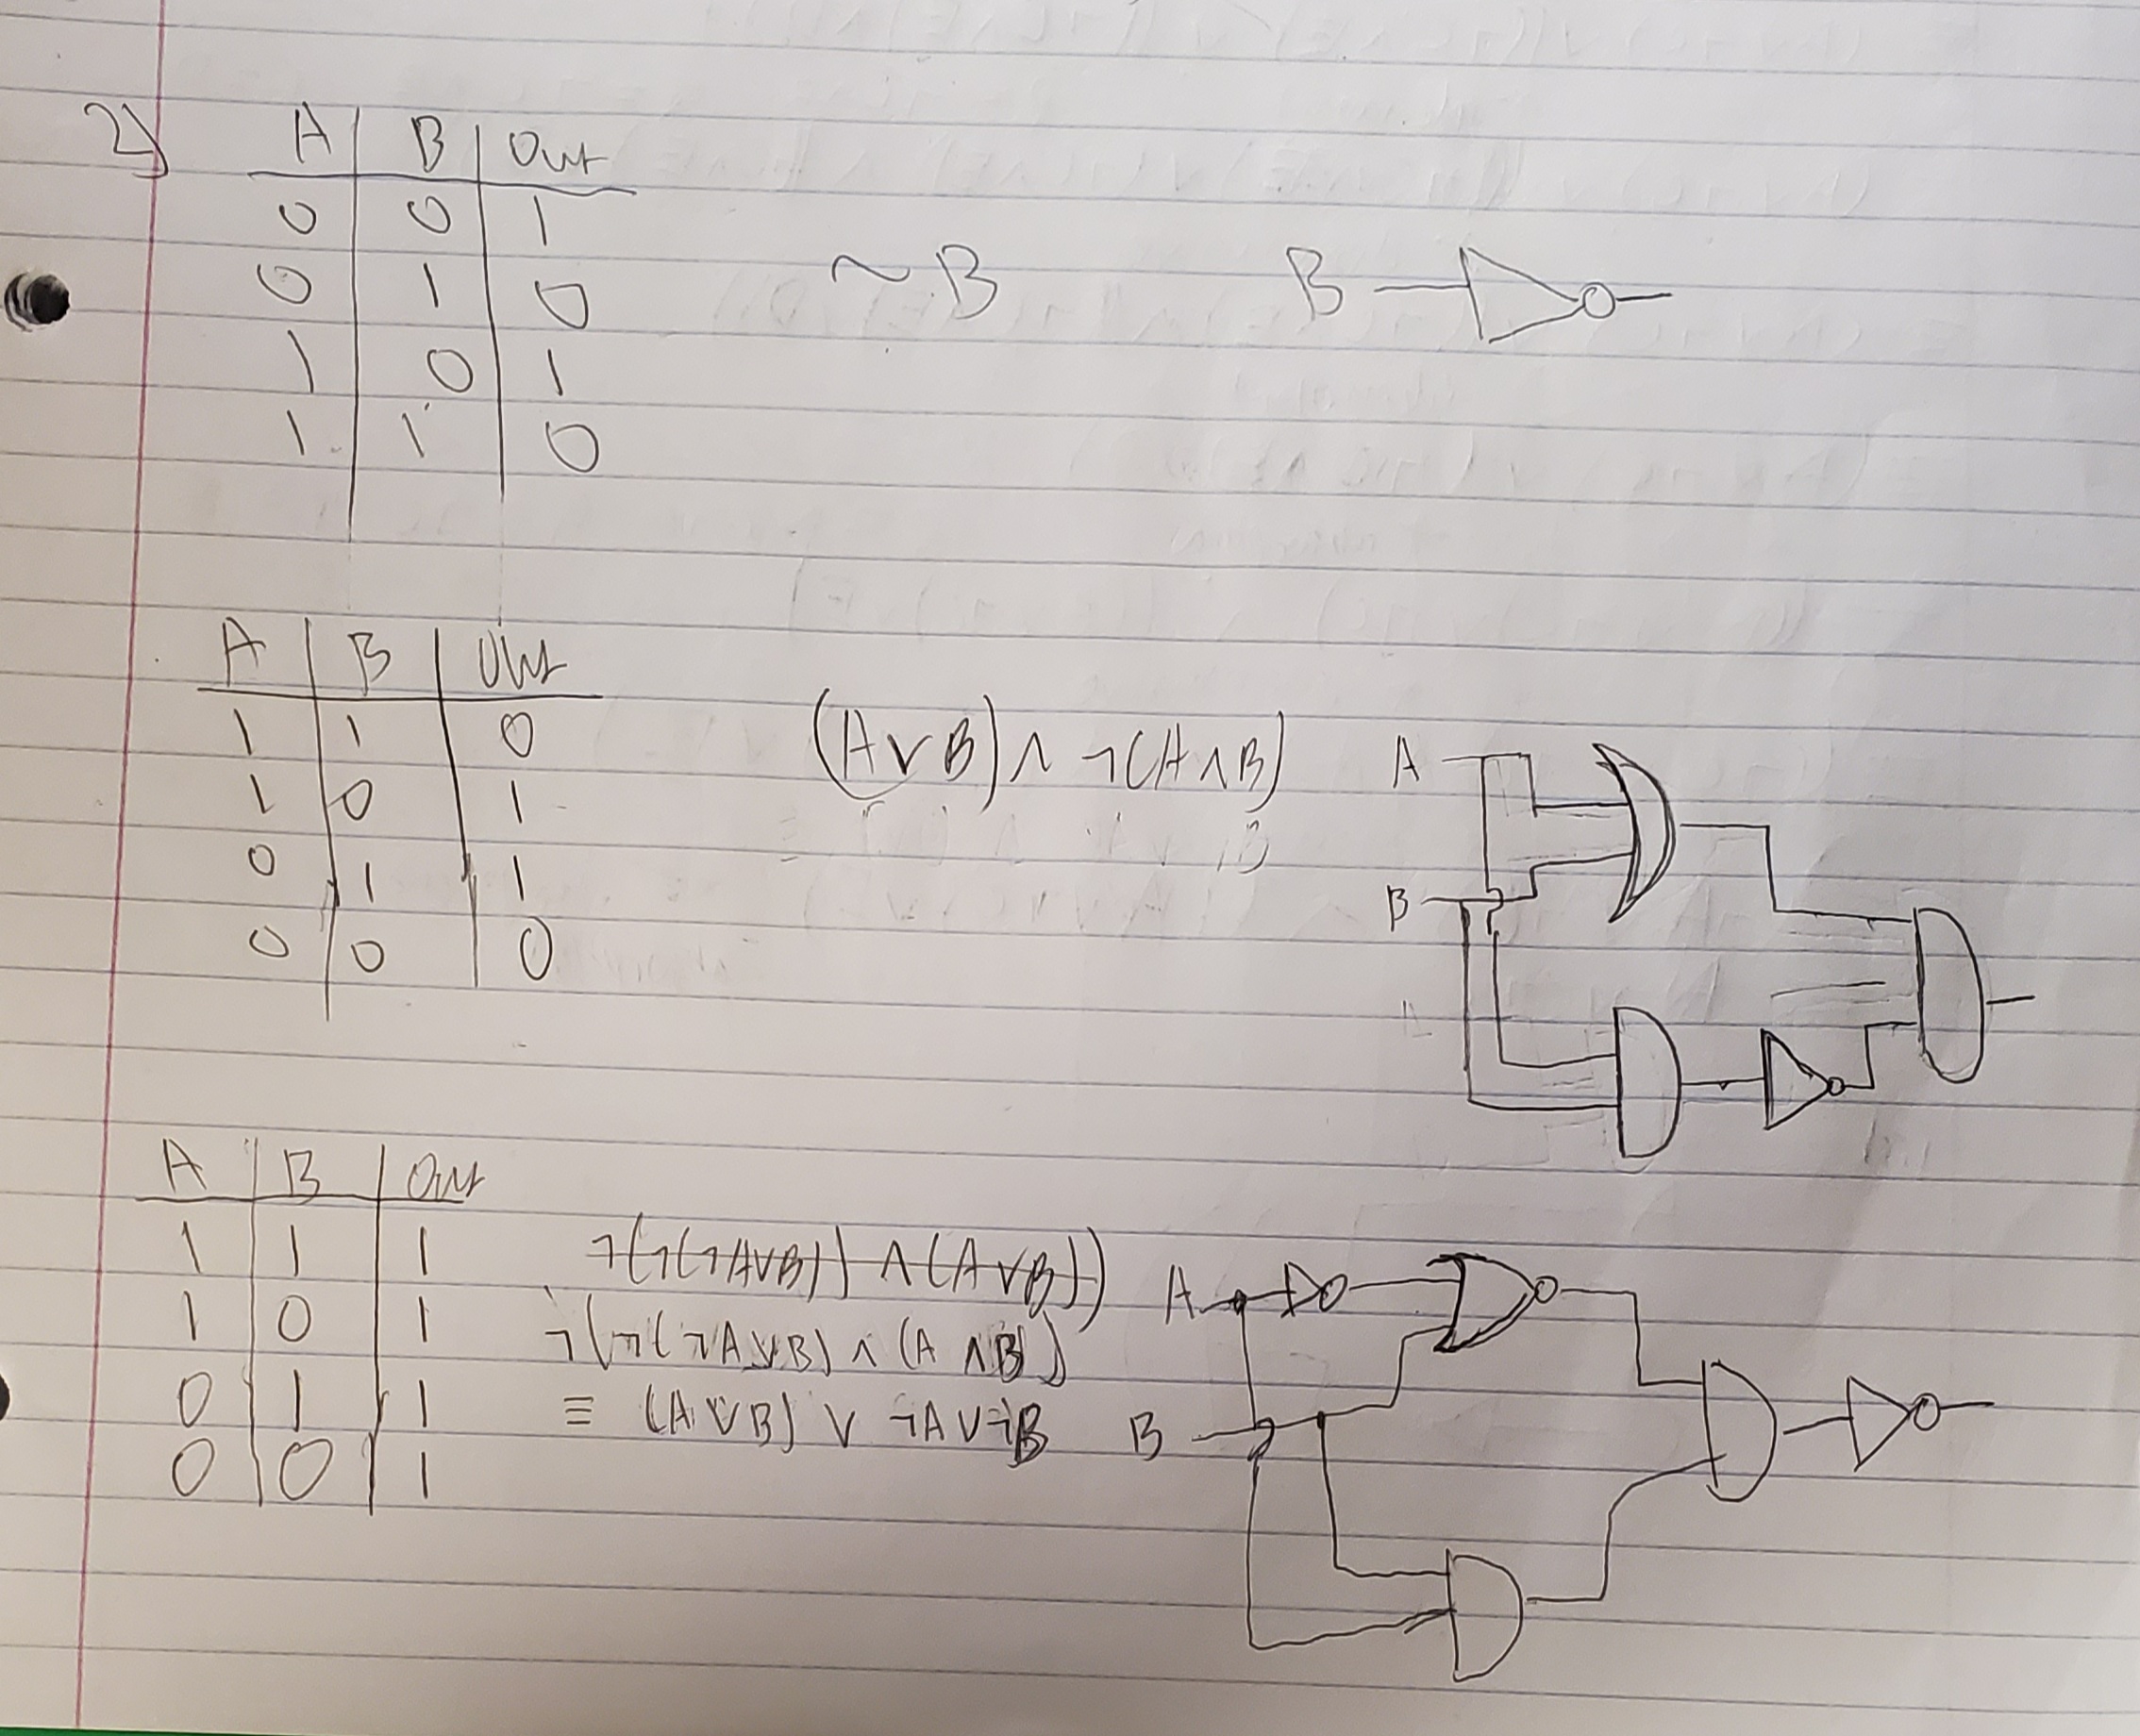 2)
A B Out
0 0 1
0 1 0
1 0 1
1 1 0
~B
B
A B Out
1 1 0
1 0 1
0 1 1
0 0 0
(A∨B)∧¬(A∧B)
A
B
A B Out
1 1 1
1 0 1
0 1 1
0 0 1
¬(¬(¬A∨B))∧(A∨B))
¬(¬(¬A∨B)∧(A∧B))
≡ (A∨B)∨¬A∨¬B
A
B